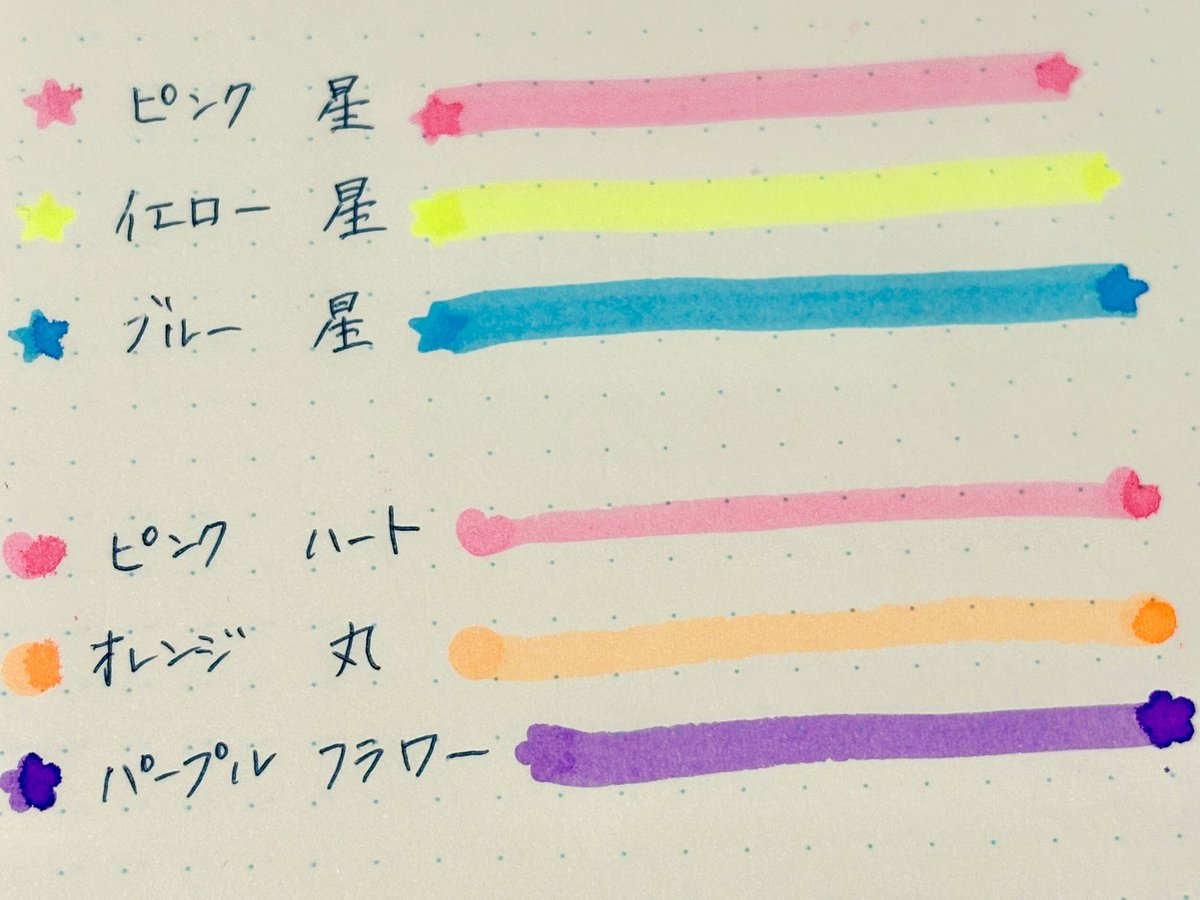 ピンク 星
イエロー 星
ブルー 星
ピンク ハート
オレンジ 丸
パープル フラワー